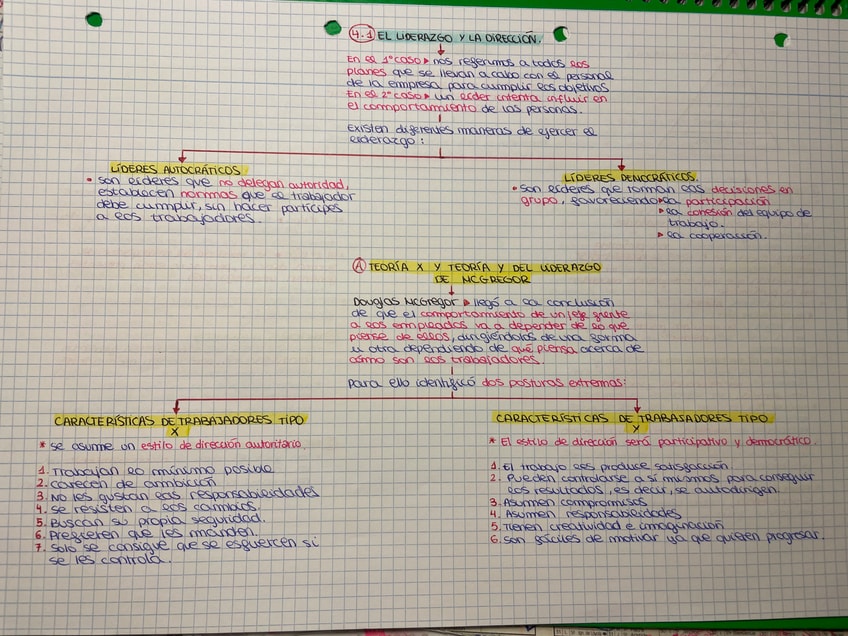 4.1 EL LIDERAZGO Y LA DIRECCIÓN.
En el 1º caso ▸ nos referimos a todos los
planes que se llevan a cabo con el personal
de la empresa para cumplir los objetivos
En el 2º caso ▸ un líder intenta influir en
el comportamiento de las personas.
Existen diferentes maneras de ejercer el
liderazgo:
LÍDERES AUTOCRÁTICOS
• Son líderes que no delegan autoridad,
establecen normas que el trabajador
debe cumplir, sin hacer partícipes
a los trabajadores.
LÍDERES DEMOCRÁTICOS.
• Son líderes que toman las decisiones en
grupo, favoreciendo ▸ la participación
▸ la cohesión del equipo de
trabajo.
▸ la cooperación.
A TEORÍA X Y TEORÍA Y DEL LIDERAZGO
DE MCGREGOR
Douglas McGregor ▸ llegó a la conclusión
de que el comportamiento de un jefe frente
a los empleados va a depender de lo que
piense de ellos, dirigiéndolos de una forma
u otra dependiendo de qué piensa acerca de
cómo son los trabajadores.
Para ello identificó dos posturas extremas:
CARACTERÍSTICAS DE TRABAJADORES TIPO
X
* Se asume un estilo de dirección autoritario.
1. Trabajan lo mínimo posible
2. Carecen de ambición
3. No les gustan las responsabilidades
4. Se resisten a los cambios.
5. Buscan su propia seguridad.
6. Prefieren que les manden.
7. Solo se consigue que se esfuercen si
se les controla.
CARACTERÍSTICAS DE TRABAJADORES TIPO
Y
* El estilo de dirección será participativo y democrático.
1. El trabajo les produce satisfacción.
2. Pueden controlarse a sí mismos para conseguir
los resultados, es decir, se autodirigen.
3. Asumen compromisos
4. Asumen responsabilidades
5. Tienen creatividad e imaginación
6. Son fáciles de motivar ya que quieren progresar.